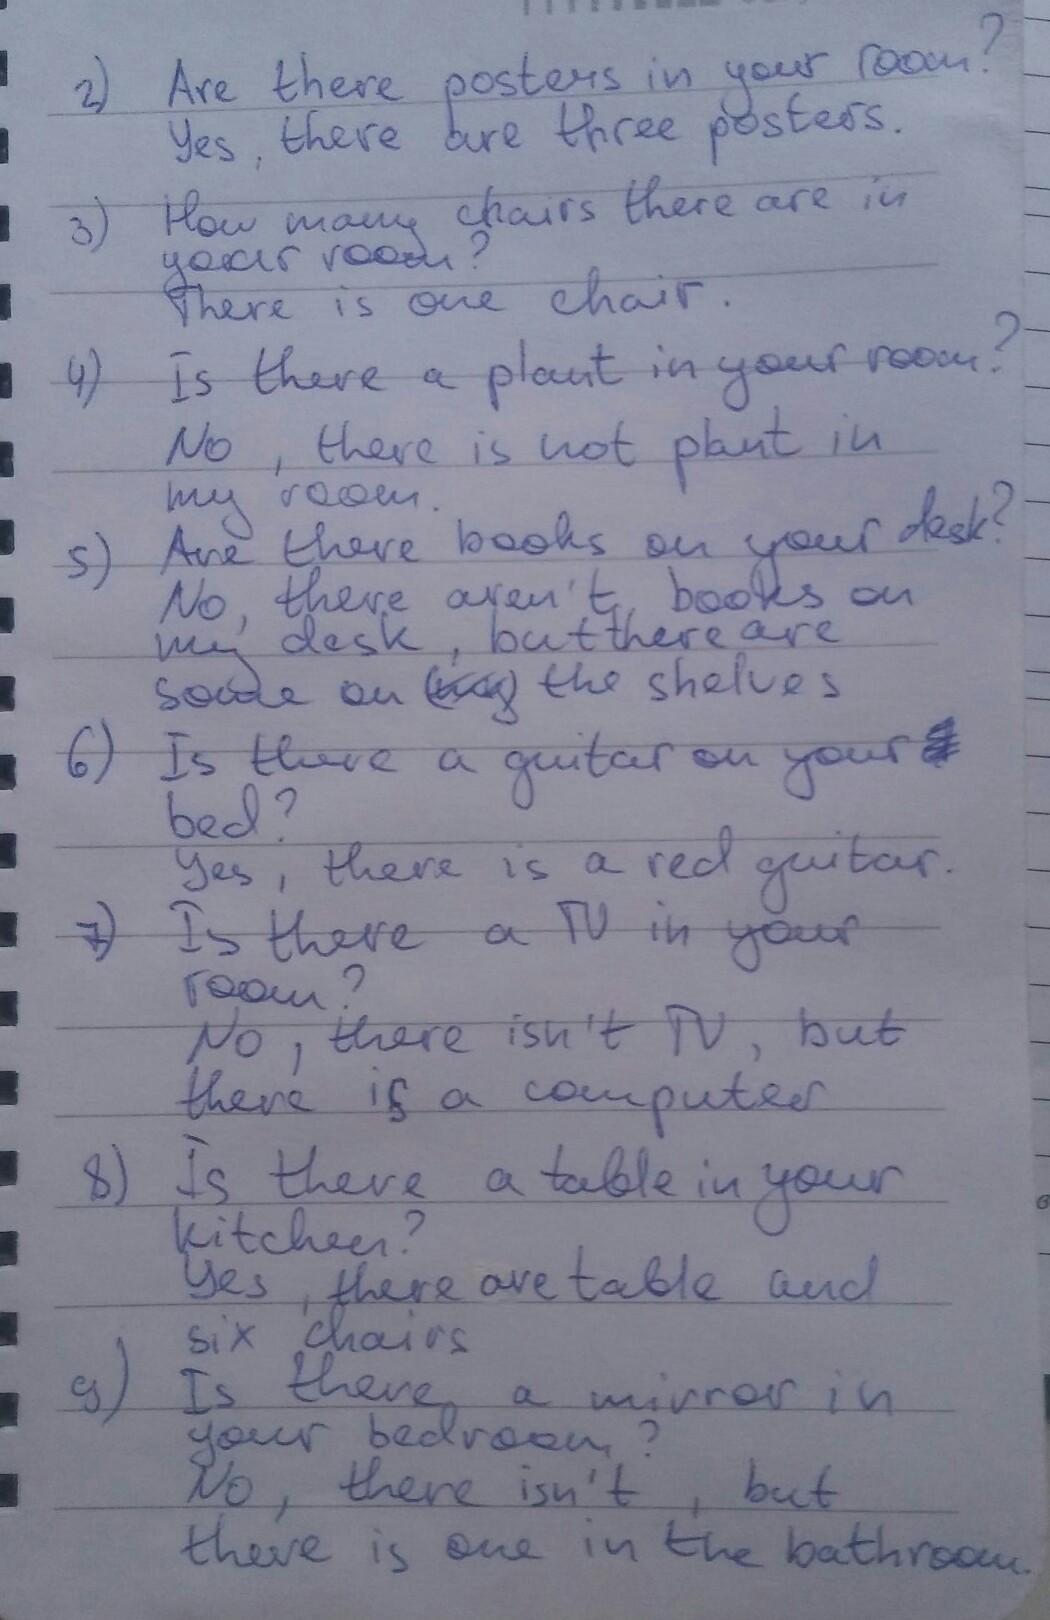 2) Are there posters in your room?
Yes, there are three posters.
3) How many chairs there are in
your room?
There is one chair.
4) Is there a plant in your room?
No, there is not plant in
my room.
5) Are there books on your desk?
No, there aren't books on
my desk, but there are
some on the shelves
6) Is there a guitar on your
bed?
Yes, there is a red guitar.
7) Is there a TV in your
room?
No, there isn't TV, but
there is a computer
8) Is there a table in your
kitchen?
Yes, there are table and
six chairs
9) Is there a mirror in
your bedroom?
No, there isn't, but
there is one in the bathroom.